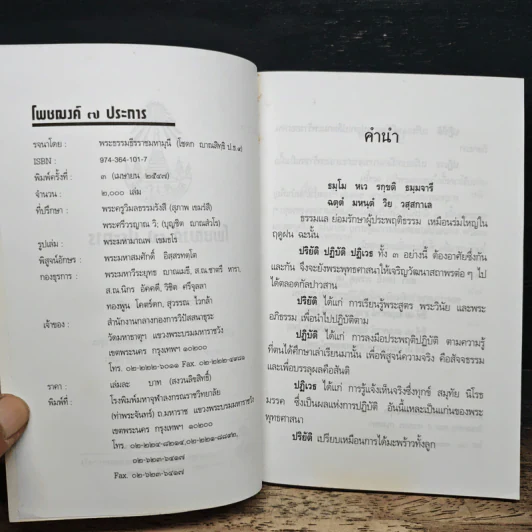 โพชฌงค์ ๗ ประการ
รจนาโดย : พระธรรมธีรราชมหามุนี (โชดก ญาณสิทธิ ป.ธ.๙)
ISBN : 974-364-101-7
พิมพ์ครั้งที่ : ๓ (เมษายน ๒๕๔๗)
จำนวน : ๒,๐๐๐ เล่ม
ที่ปรึกษา : พระครูวิมลธรรมรังสี (สุภาพ เขมรํสี)
พระศรีวรญาณ วิ. (บุญชิต ญาณสํวโร)
รูปเล่ม : พระมหามาณพ เขมธโร
พิสูจน์อักษร : พระมหาสมศักดิ์ อิสฺสรทตฺโต
กองธุรการ : พระมหาวีระยุทธ ญาณเมธี, ส.ณ.ชาตรี หารา,
ส.ณ.นิกร อัคคดี, วิชิต ศรีจุลลา
ทองพูน โคตร์ดก, สุวรรณ
เจ้าของ : สำนักงานกลางกองการวิปัสสนาธุระ
วัดมหาธาตุฯ แขวงพระบรมมหาราชวัง
เขตพระนคร กรุงเทพฯ ๑๐๒๐๐
โทร. ๐๒-๒๒๒-๖๐๑๑ Fax.
ราคา : เล่มละ บาท (สงวนลิขสิทธิ์)
พิมพ์ที่ : โรงพิมพ์มหาจุฬาลงกรณราชวิทยาลัย
(ท่าพระจันทร์) ถ.มหาราช แขวงพระบรมมหาราชวัง
เขตพระนคร กรุงเทพฯ ๑๐๒๐๐
โทร. ๐๒-๒๒๔-๘๒๑๔, ๐๒-๒๒๑-๘๘๙๒,
๐๒-๖๒๓-๖๔๑๗
Fax. ๐๒-๖๒๓-๖๔๑๗
คำนำ
ธมฺโม หเว รกฺขติ ธมฺมจารึ
ฉตฺตํ มหนฺตํ วิย วสฺสกาเล
ธรรมแล ย่อมรักษาผู้ประพฤติธรรม เหมือนร่มใหญ่ใน
ฤดูฝน ฉะนั้น
ปริยัติ ปฏิบัติ ปฏิเวธ ทั้ง ๓ อย่างนี้ ต้องอาศัยซึ่งกัน
และกัน จึงจะยังพระพุทธศาสนาให้เจริญวัฒนาสถาพรต่อๆ ไป
ได้ตลอดกัลปาวสาน
ปริยัติ ได้แก่ การเรียนรู้พระสูตร พระวินัย และพระ
อภิธรรม เพื่อนำไปปฏิบัติตาม
ปฏิบัติ ได้แก่ การลงมือประพฤติปฏิบัติ ตามความรู้
ที่ตนได้ศึกษาเล่าเรียนมานั้น เพื่อพิสูจน์ความจริง คือสัจจธรรม
และเพื่อบรรลุผลคือสันติ
ปฏิเวธ ได้แก่ การรู้แจ้งเห็นจริงซึ่งทุกข์ สมุทัย นิโรธ
มรรค ซึ่งเป็นผลแห่งการปฏิบัติ อันนี้แหละเป็นแก่นของพระ
พุทธศาสนา
ปริยัติ เปรียบเหมือนการได้มะพร้าวทั้งลูก